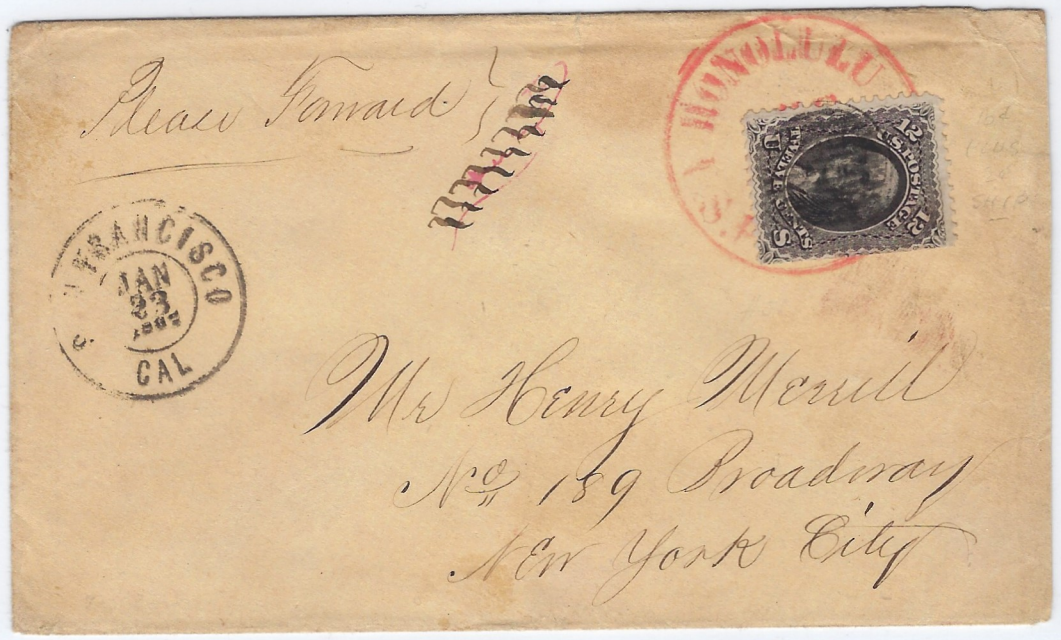 Please Forward
HONOLULU
12 12
U.S. POSTAGE
TWELVE CENTS
U S
SAN FRANCISCO
JAN
23
CAL
Mr Henry Merrill
No 189 Broadway
New York City